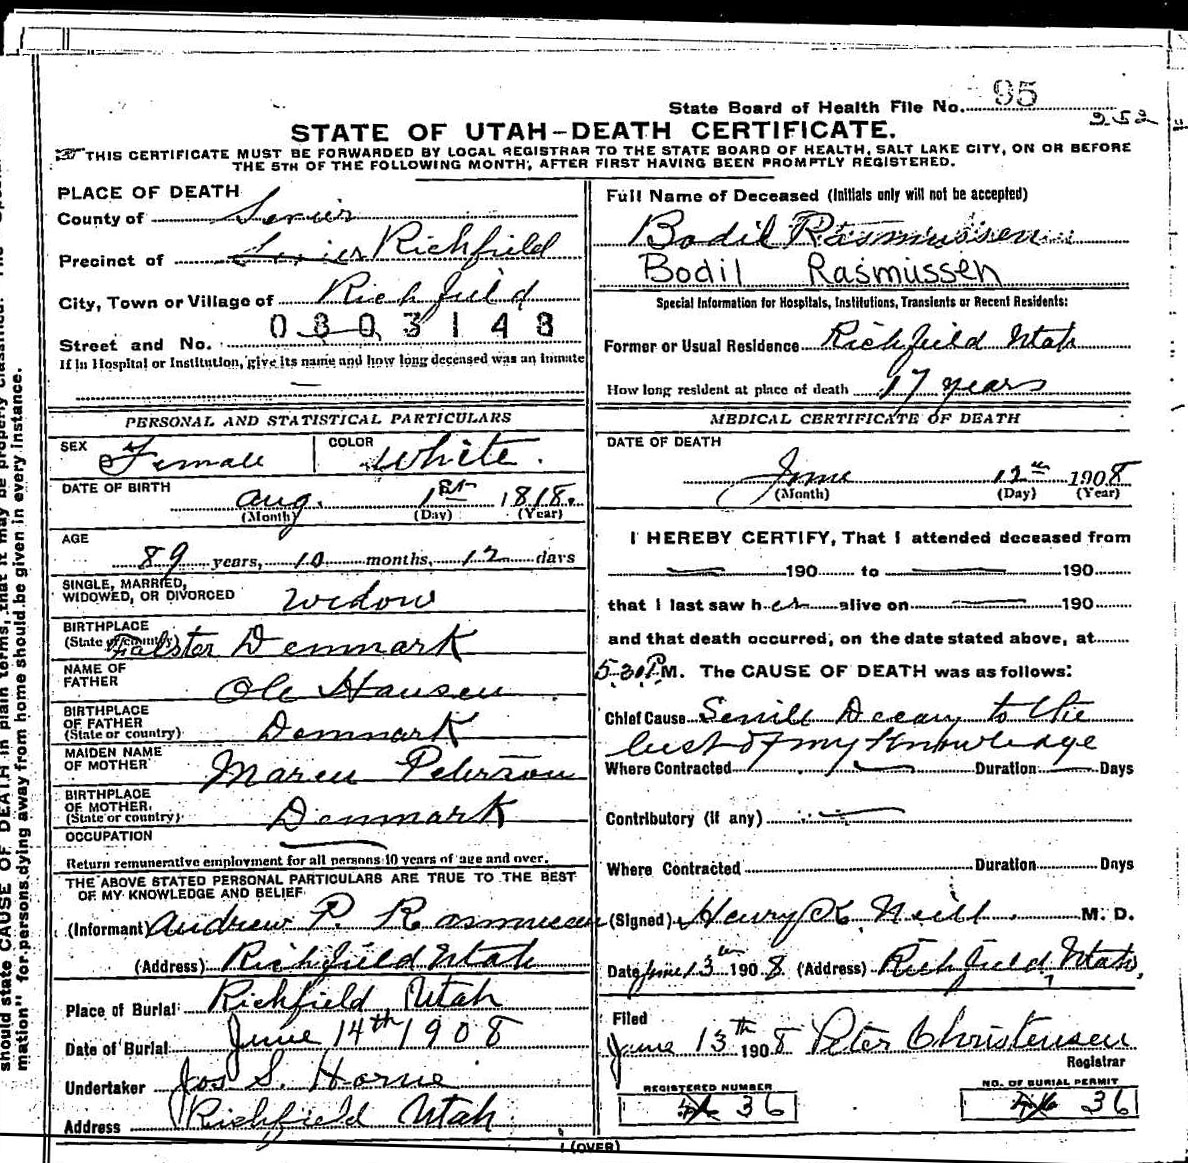 State Board of Health File No. 95
352
STATE OF UTAH-DEATH CERTIFICATE.
THIS CERTIFICATE MUST BE FORWARDED BY LOCAL REGISTRAR TO THE STATE BOARD OF HEALTH, SALT LAKE CITY, ON OR BEFORE
THE 5TH OF THE FOLLOWING MONTH, AFTER FIRST HAVING BEEN PROMPTLY REGISTERED.
PLACE OF DEATH
County of Sevier
Precinct of Sevier Richfield
City, Town or Village of Richfield
0303148
Street and No.
If in Hospital or Institution, give its name and how long deceased was an inmate
Full Name of Deceased (Initials only will not be accepted)
Bodil Rasmussen
Bodil Rasmussen
Special Information for Hospitals, Institutions, Transients or Recent Residents:
Former or Usual Residence Richfield Utah
How long resident at place of death 17 years
PERSONAL AND STATISTICAL PARTICULARS
SEX Female COLOR White.
DATE OF BIRTH Aug. 1st 1818.
(Month) (Day) (Year)
AGE
89 years, 10 months, 12 days
SINGLE, MARRIED,
WIDOWED, OR DIVORCED Widow
BIRTHPLACE
(State or country) Falster Denmark
NAME OF
FATHER Ole Hansen
BIRTHPLACE
OF FATHER
(State or country) Denmark
MAIDEN NAME
OF MOTHER Maren Peterson
BIRTHPLACE
OF MOTHER.
(State or country) Denmark
OCCUPATION
Return remunerative employment for all persons 10 years of age and over.
THE ABOVE STATED PERSONAL PARTICULARS ARE TRUE TO THE BEST
OF MY KNOWLEDGE AND BELIEF
(Informant) Andrew P. Rasmussen
(Address) Richfield Utah
Place of Burial Richfield Utah
Date of Burial June 14th 1908
Undertaker Jos S. Horne
Address Richfield Utah.
MEDICAL CERTIFICATE OF DEATH
DATE OF DEATH
June 12th 1908
(Month) (Day) (Year)
I HEREBY CERTIFY, That I attended deceased from
190 to 190
that I last saw her alive on 190
and that death occurred, on the date stated above, at
5-30 P.M. The CAUSE OF DEATH was as follows:
Chief Cause Senill Decay to the
best of my Knowledge
Where Contracted Duration Days
Contributory (if any)
Where Contracted Duration Days
(Signed) Henry K. Neill M. D.
Date June 13th 1908 (Address) Richfield, Utah,
Filed
June 13th 1908 Peter Christensen
Registrar
REGISTERED NUMBER
36
NO. OF BURIAL PERMIT
36
(OVER)
should state CAUSE OF DEATH in plain terms, that it may be properly classified. The
mation" for persons dying away from home should be given in every instance.